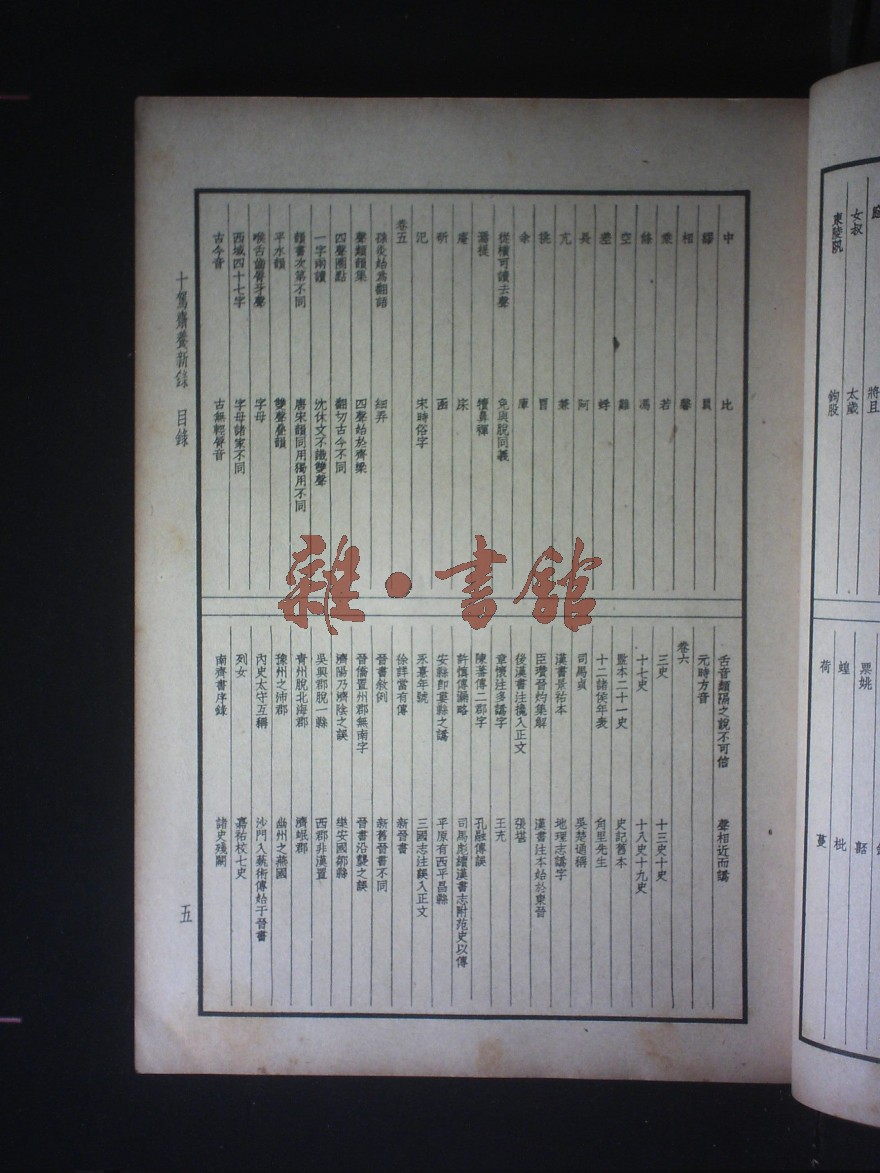 中　比
繆
相　馨
乘　若
絳　馮
空　雞
差　蚌
長　阿
亢　蒹
詵　罥
余　庫
從橫可讀去聲　免與脫同義
漏慢　犢鼻褌
庵　床
斫　函
氾　宋時俗字
卷五
孫炎始為翻語　細弄
聲類韻集　四聲始於齊梁
四聲圈點　翻切古今不同
一字兩讀　沈休文不識雙聲
韻書次第不同　唐宋韻同用獨用不同
平水韻　雙聲疊韻
喉舌齒脣牙聲　字母
西域四十七字　字母諸家不同
古今音　古無輕脣音
舌音類隔之說不可信　聲相近而譌
元時方音
卷六
三史　十三史十史
十七史　十八史十九史
監本二十一史　史記舊本
十二諸侯年表　甪里先生
司馬貞　吳楚通稱
漢書景祐本　地理志譌字
臣瓚晉灼集解　漢書注本始於東晉
後漢書注攙入正文　張堪
章懷注多譌字　王充
陳蕃傳二郡字　孔融傳誤
許慎傳漏略　司馬彪續漢書志附范史以傳
安縣即婁縣之譌　平原有西平昌縣
永憙年號　三國志注誤入正文
徐詳當有傳　新晉書
晉書敘例　新舊晉書不同
晉僑置州郡無南字　晉書沿襲之誤
濟陽乃濟陰之誤　樂安國鄒縣
吳興郡脫一縣　西郡非漢置
青州脫北海郡　濟岷郡
豫州之沛郡　幽州之燕國
內史太守互稱　沙門入藝術傳始于晉書
列女　嘉祐校七史
南齊書序錄　諸史殘闕
十駕齋養新錄　目錄
五
女叔　太歲
東陵瓜　鉤股
將且
票姚　
蝗　枇
荷　蔓
雜·書館